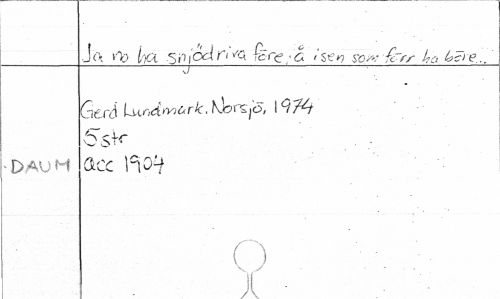 Ja no ha snjödriva före, å isen som förr ha bore...
Gerd Lundmark. Norsjö, 1974
5 str
DAUM acc 1904